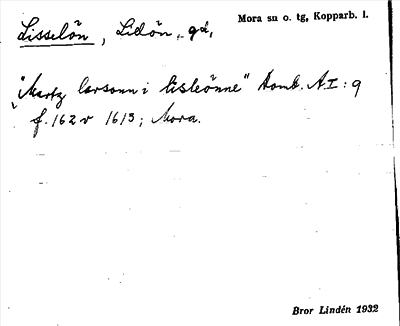 Lisselön, Lidön, gd, Mora sn o. tg, Kopparb. l.
"Martz larsonn i lisleönne" Domb. AI:9
f. 162 v 1615; Mora.
Bror Lindén 1932